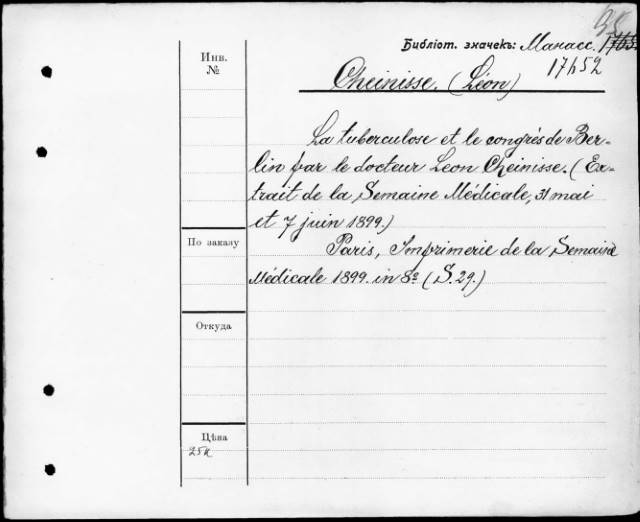 95
Библіот. значекъ: Манасс.
17/52
Инв.
№
Cheinisse. (Léon)
La tuberculose et le congrès de Ber-
lin par le docteur Leon Cheinisse. (Ex-
trait de la Semaine Médicale, 31 mai
et 7 juin 1899.)
По заказу
Paris, Imprimerie de la Semaine
Médicale 1899. in 8º (S. 29.)
Откуда
Цѣна
25к